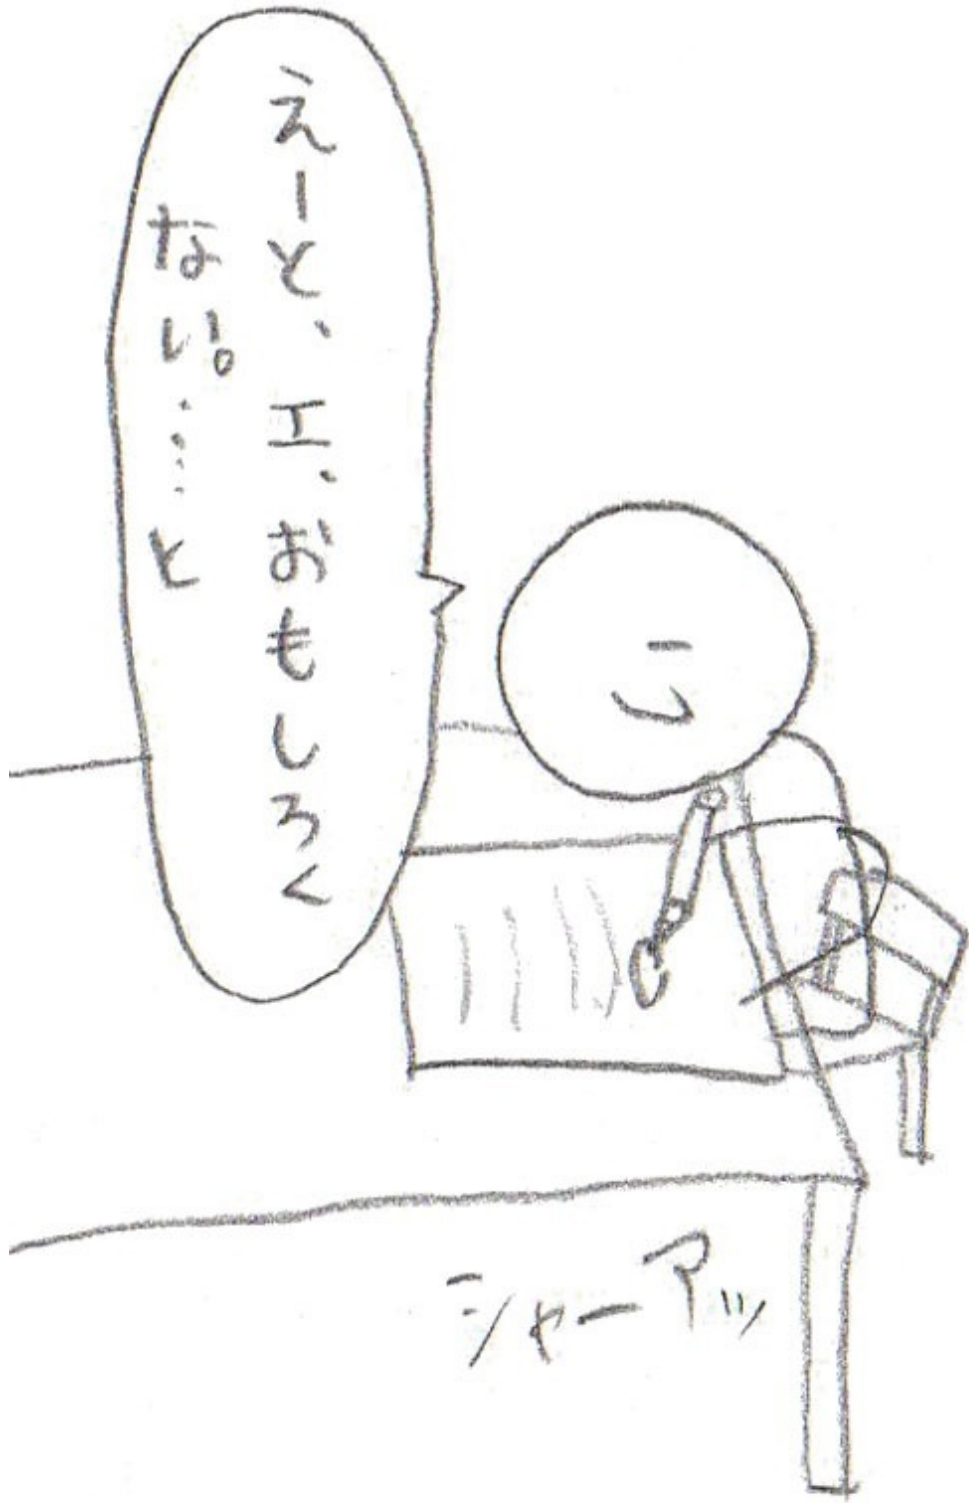 えーと、エ、おもしろく
ない。……と
シャーアッ